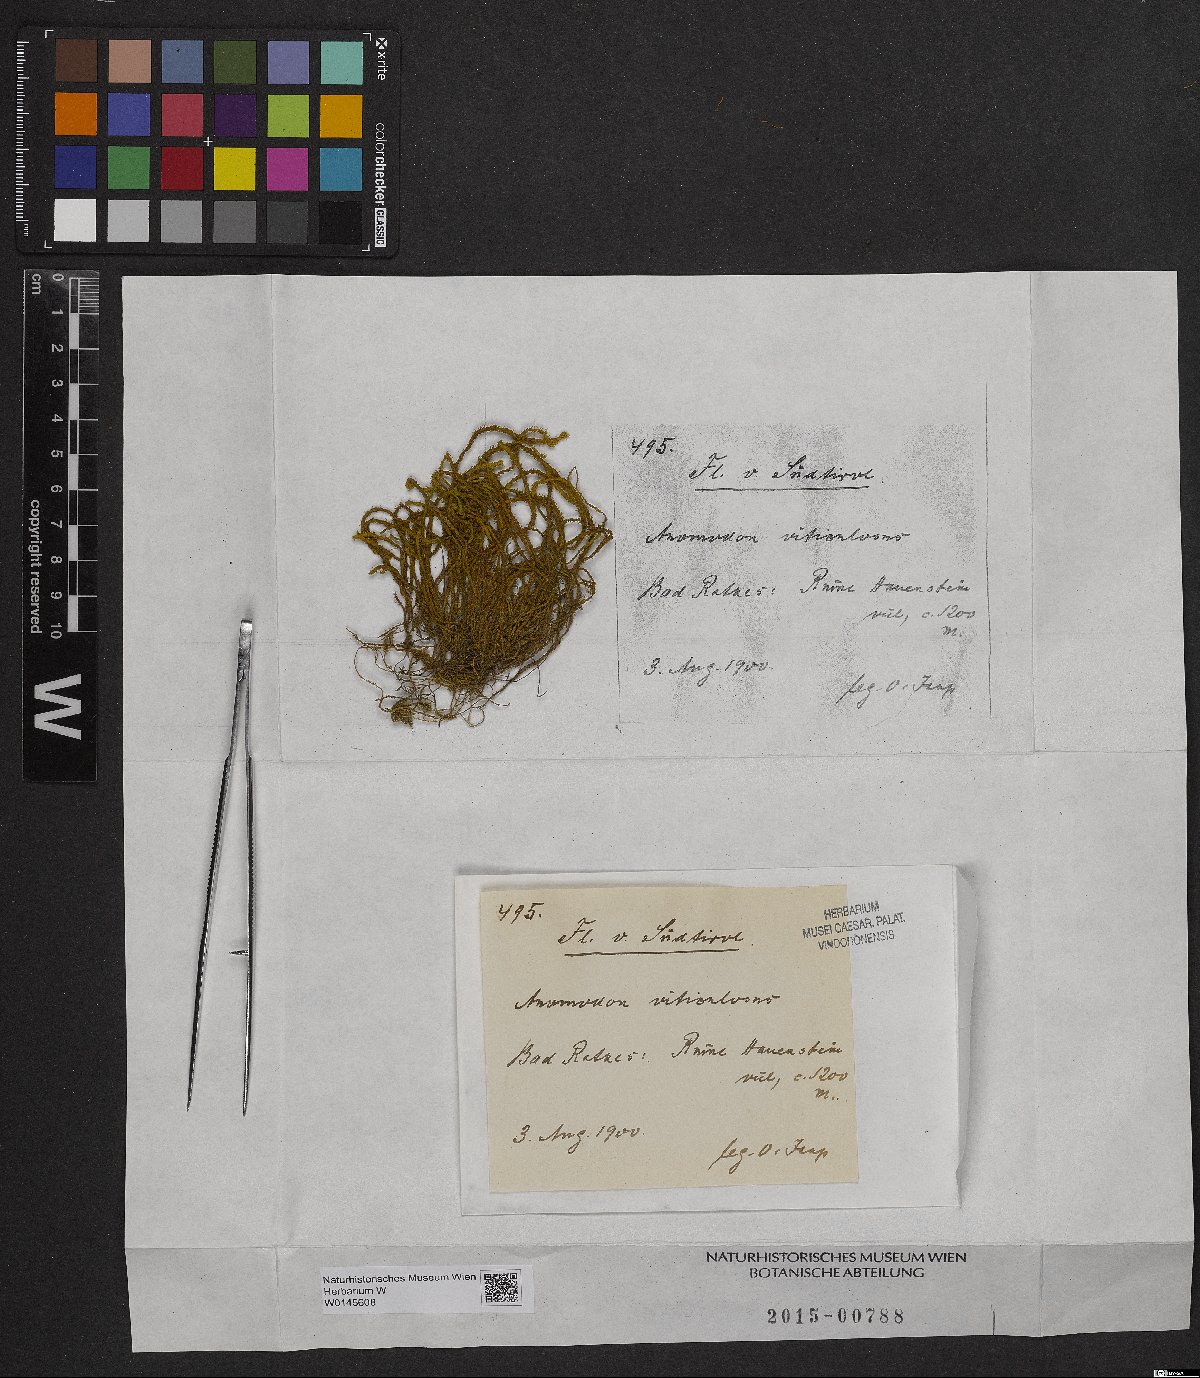 x-rite
colorchecker CLASSIC
mm
cm
0 1 2 3 4 5 6 7 8 9 10
copyright reserved
W
495.
Fl. v. Südtirol
Anomodon viticulosus
Bad Ratzes: Ruine Hauenstein
c. 1200
m.
3. Aug. 1900.
leg. O.
495.
Fl. v. Südtirol.
Anomodon viticulosus
Bad Ratzes: Ruine Hauenstein
c. 1200
m.
3. Aug. 1900.
leg. O.
HERBARIUM
MUSEI CAESAR. PALAT.
VINDOBONENSIS
NATURHISTORISCHES MUSEUM WIEN
BOTANISCHE ABTEILUNG
2015-00788
Naturhistorisches Museum Wien
Herbarium W
W0145608